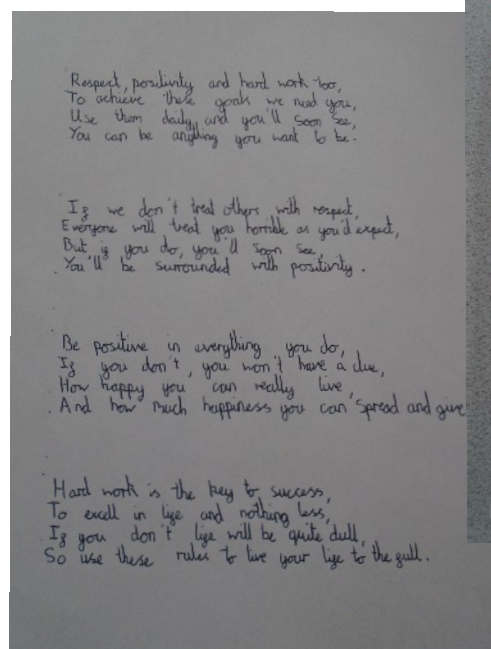 Respect, positivity and hard work too,
To achieve these goals we need you,
Use them daily and you'll soon see,
You can be anything you want to be.
If we don't treat others with respect,
Everyone will treat you horrible as you'd expect,
But if you do, you'll soon see,
You'll be surrounded with positivity.
Be positive in everything you do,
If you don't, you won't have a clue,
How happy you can really live,
And how much happiness you can spread and give
Hard work is the key to success,
To excell in life and nothing less,
If you don't life will be quite dull,
So use these rules to live your life to the full.